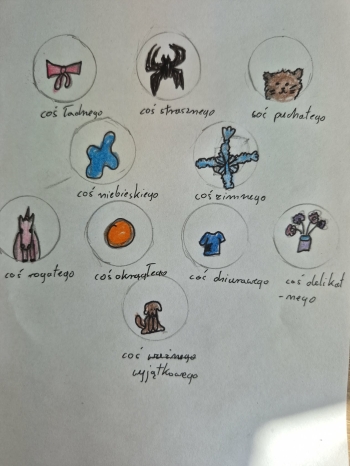 coś ładnego
coś strasznego
coś puchatego
coś niebieskiego
coś zimnego
coś rogatego
coś okrągłego
coś dziurawego
coś delikat
-nego
coś ważnego
wyjątkowego